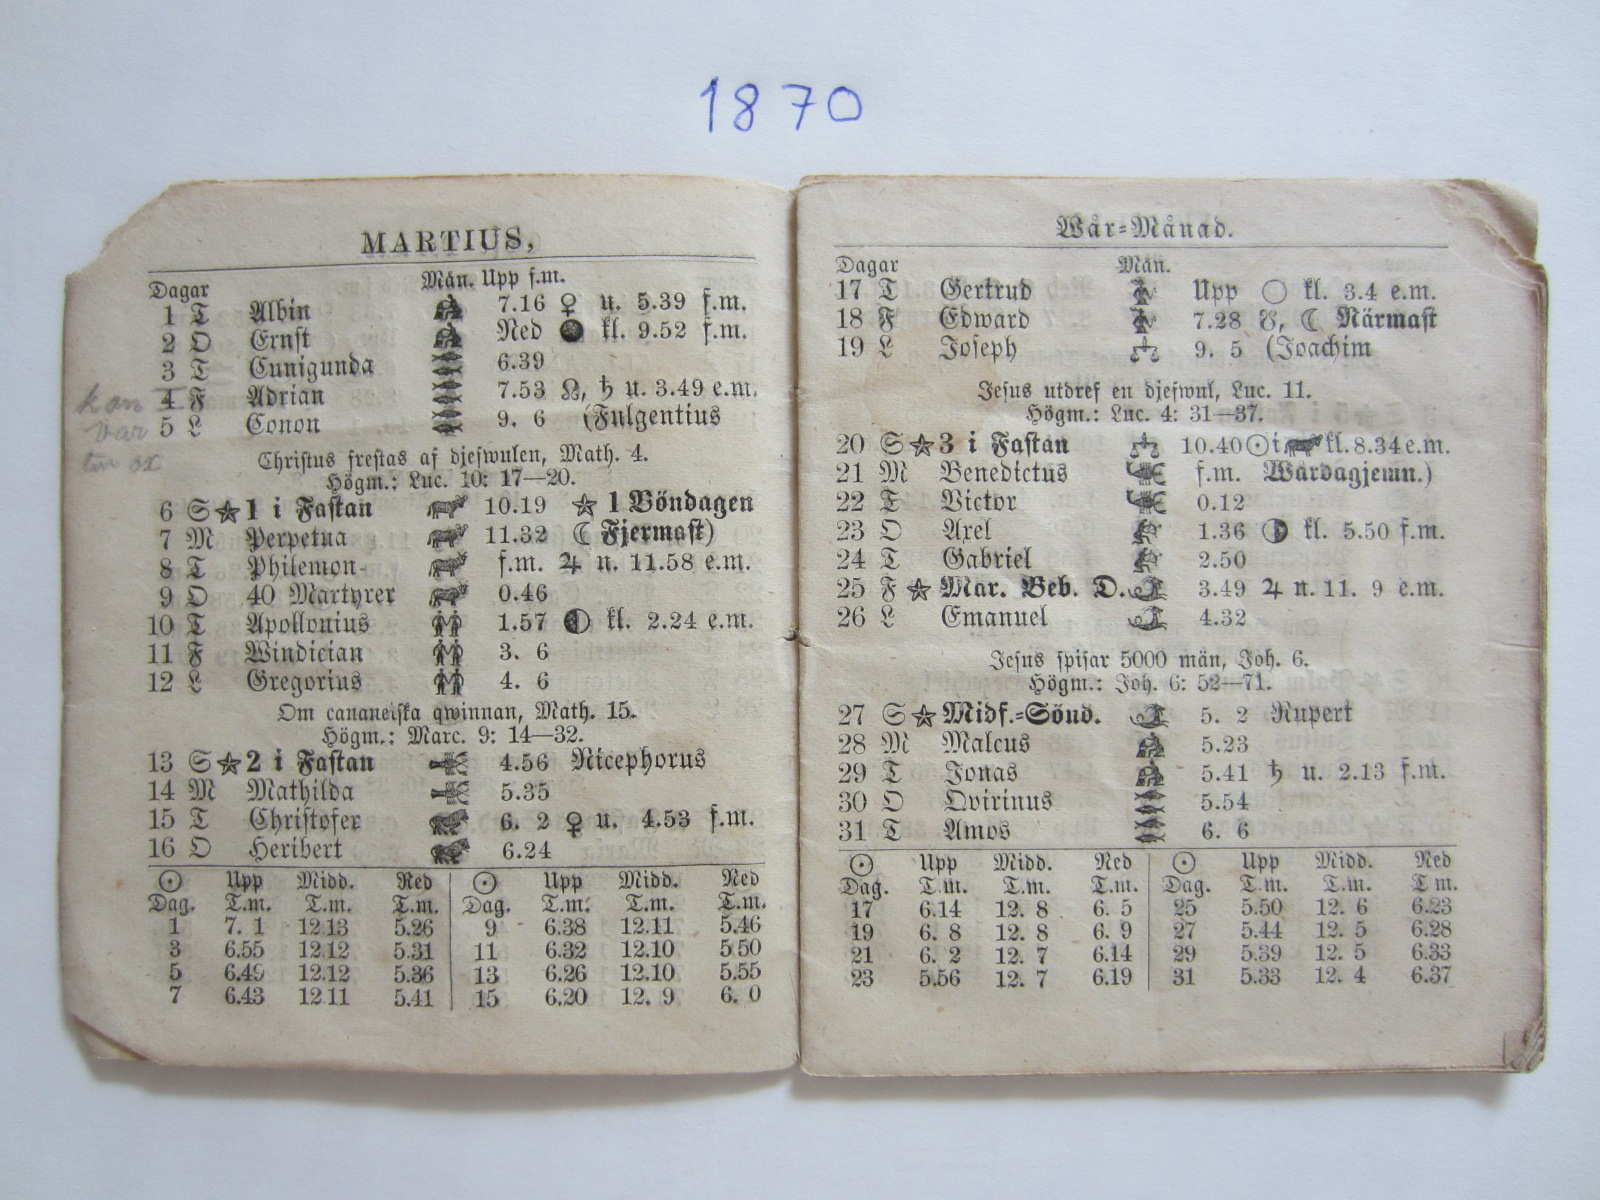 1870
MARTIUS,
Dagar Mån. Upp f.m.
1 T Albin 7.16 ♀ u. 5.39 f.m.
2 O Ernst Ned ● kl. 9.52 f.m.
3 T Cunigunda 6.39
4 F Adrian 7.53 ☊, ♄ u. 3.49 e.m.
5 L Conon 9. 6 (Fulgentius
kon
var
Christus frestas af djefwulen, Math. 4.
Högm.: Luc. 10: 17—20.
6 S ★ 1 i Fastan 10.19 ★ 1 Böndagen
7 M Perpetua 11.32 ☾ Fjermast)
8 T Philemon f.m. ♃ n. 11.58 e.m.
9 O 40 Martyrer 0.46
10 T Apollonius 1.57 ◐ kl. 2.24 e.m.
11 F Windician 3. 6
12 L Gregorius 4. 6
Om cananeiska qwinnan, Math. 15.
Högm.: Marc. 9: 14—32.
13 S ★ 2 i Fastan 4.56 Nicephorus
14 M Mathilda 5.35
15 T Christofer 6. 2 ♀ u. 4.53 f.m.
16 O Heribert 6.24
☉ Upp Midd. Ned ☉ Upp Midd. Ned
Dag. T.m. T.m. T.m. Dag. T.m. T.m. T.m.
1 7. 1 12.13 5.26 9 6.38 12.11 5.46
3 6.55 12.12 5.31 11 6.32 12.10 5.50
5 6.49 12.12 5.36 13 6.26 12.10 5.55
7 6.43 12.11 5.41 15 6.20 12. 9 6. 0
Wår-Månad.
Dagar Mån.
17 T Gertrud Upp ○ kl. 3.4 e.m.
18 F Edward 7.28 ☋, ☾ Närmast
19 L Joseph 9. 5 (Joachim
Jesus utdref en djefwul, Luc. 11.
Högm.: Luc. 4: 31—37.
20 S ★ 3 i Fastan 10.40 ☉ i kl. 8.34 e.m.
21 M Benedictus f.m. Wårdagjemn.)
22 T Victor 0.12
23 O Axel 1.36 ◑ kl. 5.50 f.m.
24 T Gabriel 2.50
25 F ★ Mar. Beb. D. 3.49 ♃ n. 11. 9 e.m.
26 L Emanuel 4.32
Jesus spisar 5000 män, Joh. 6.
Högm.: Joh. 6: 52—71.
27 S ★ Midf.-Sönd. 5. 2 Rupert
28 M Malcus 5.23
29 T Jonas 5.41 ♄ u. 2.13 f.m.
30 O Qvirinus 5.54
31 T Amos 6. 6
☉ Upp Midd. Ned ☉ Upp Midd. Ned
Dag. T.m. T.m. T.m. Dag. T.m. T.m. T m.
17 6.14 12. 8 6. 5 25 5.50 12. 6 6.23
19 6. 8 12. 8 6. 9 27 5.44 12. 5 6.28
21 6. 2 12. 7 6.14 29 5.39 12. 5 6.33
23 5.56 12. 7 6.19 31 5.33 12. 4 6.37